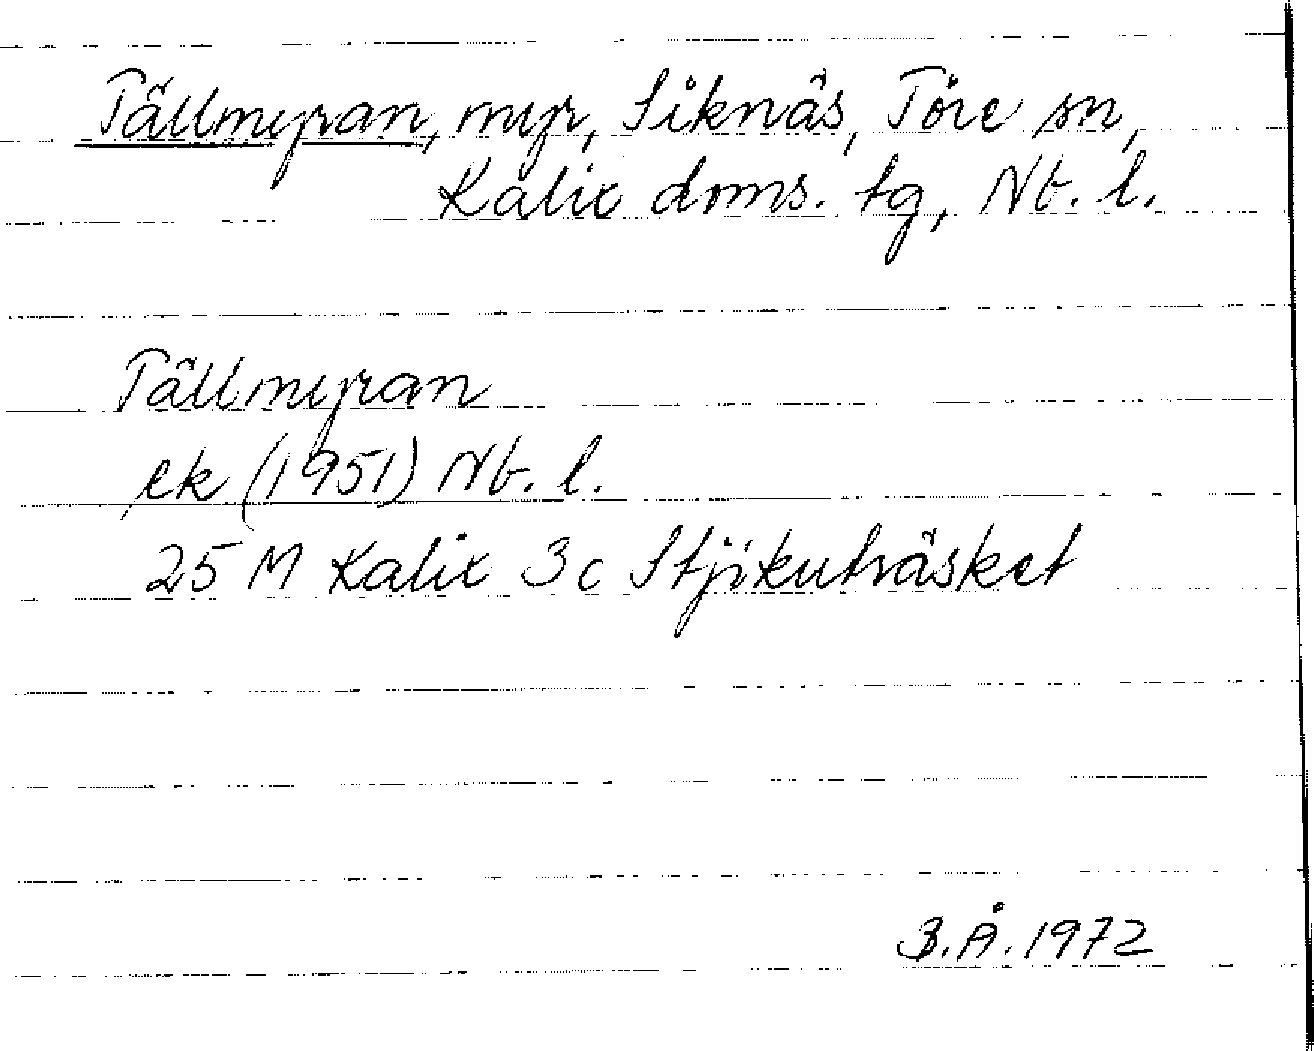 Tällmyran, myr, Siknäs, Töre sn,
Kalix doms. tg, Nb. l.
Tällmyran
ek (1951) Nb. l.
25 M Kalix 3c Stjikuträsket
B.Å. 1972